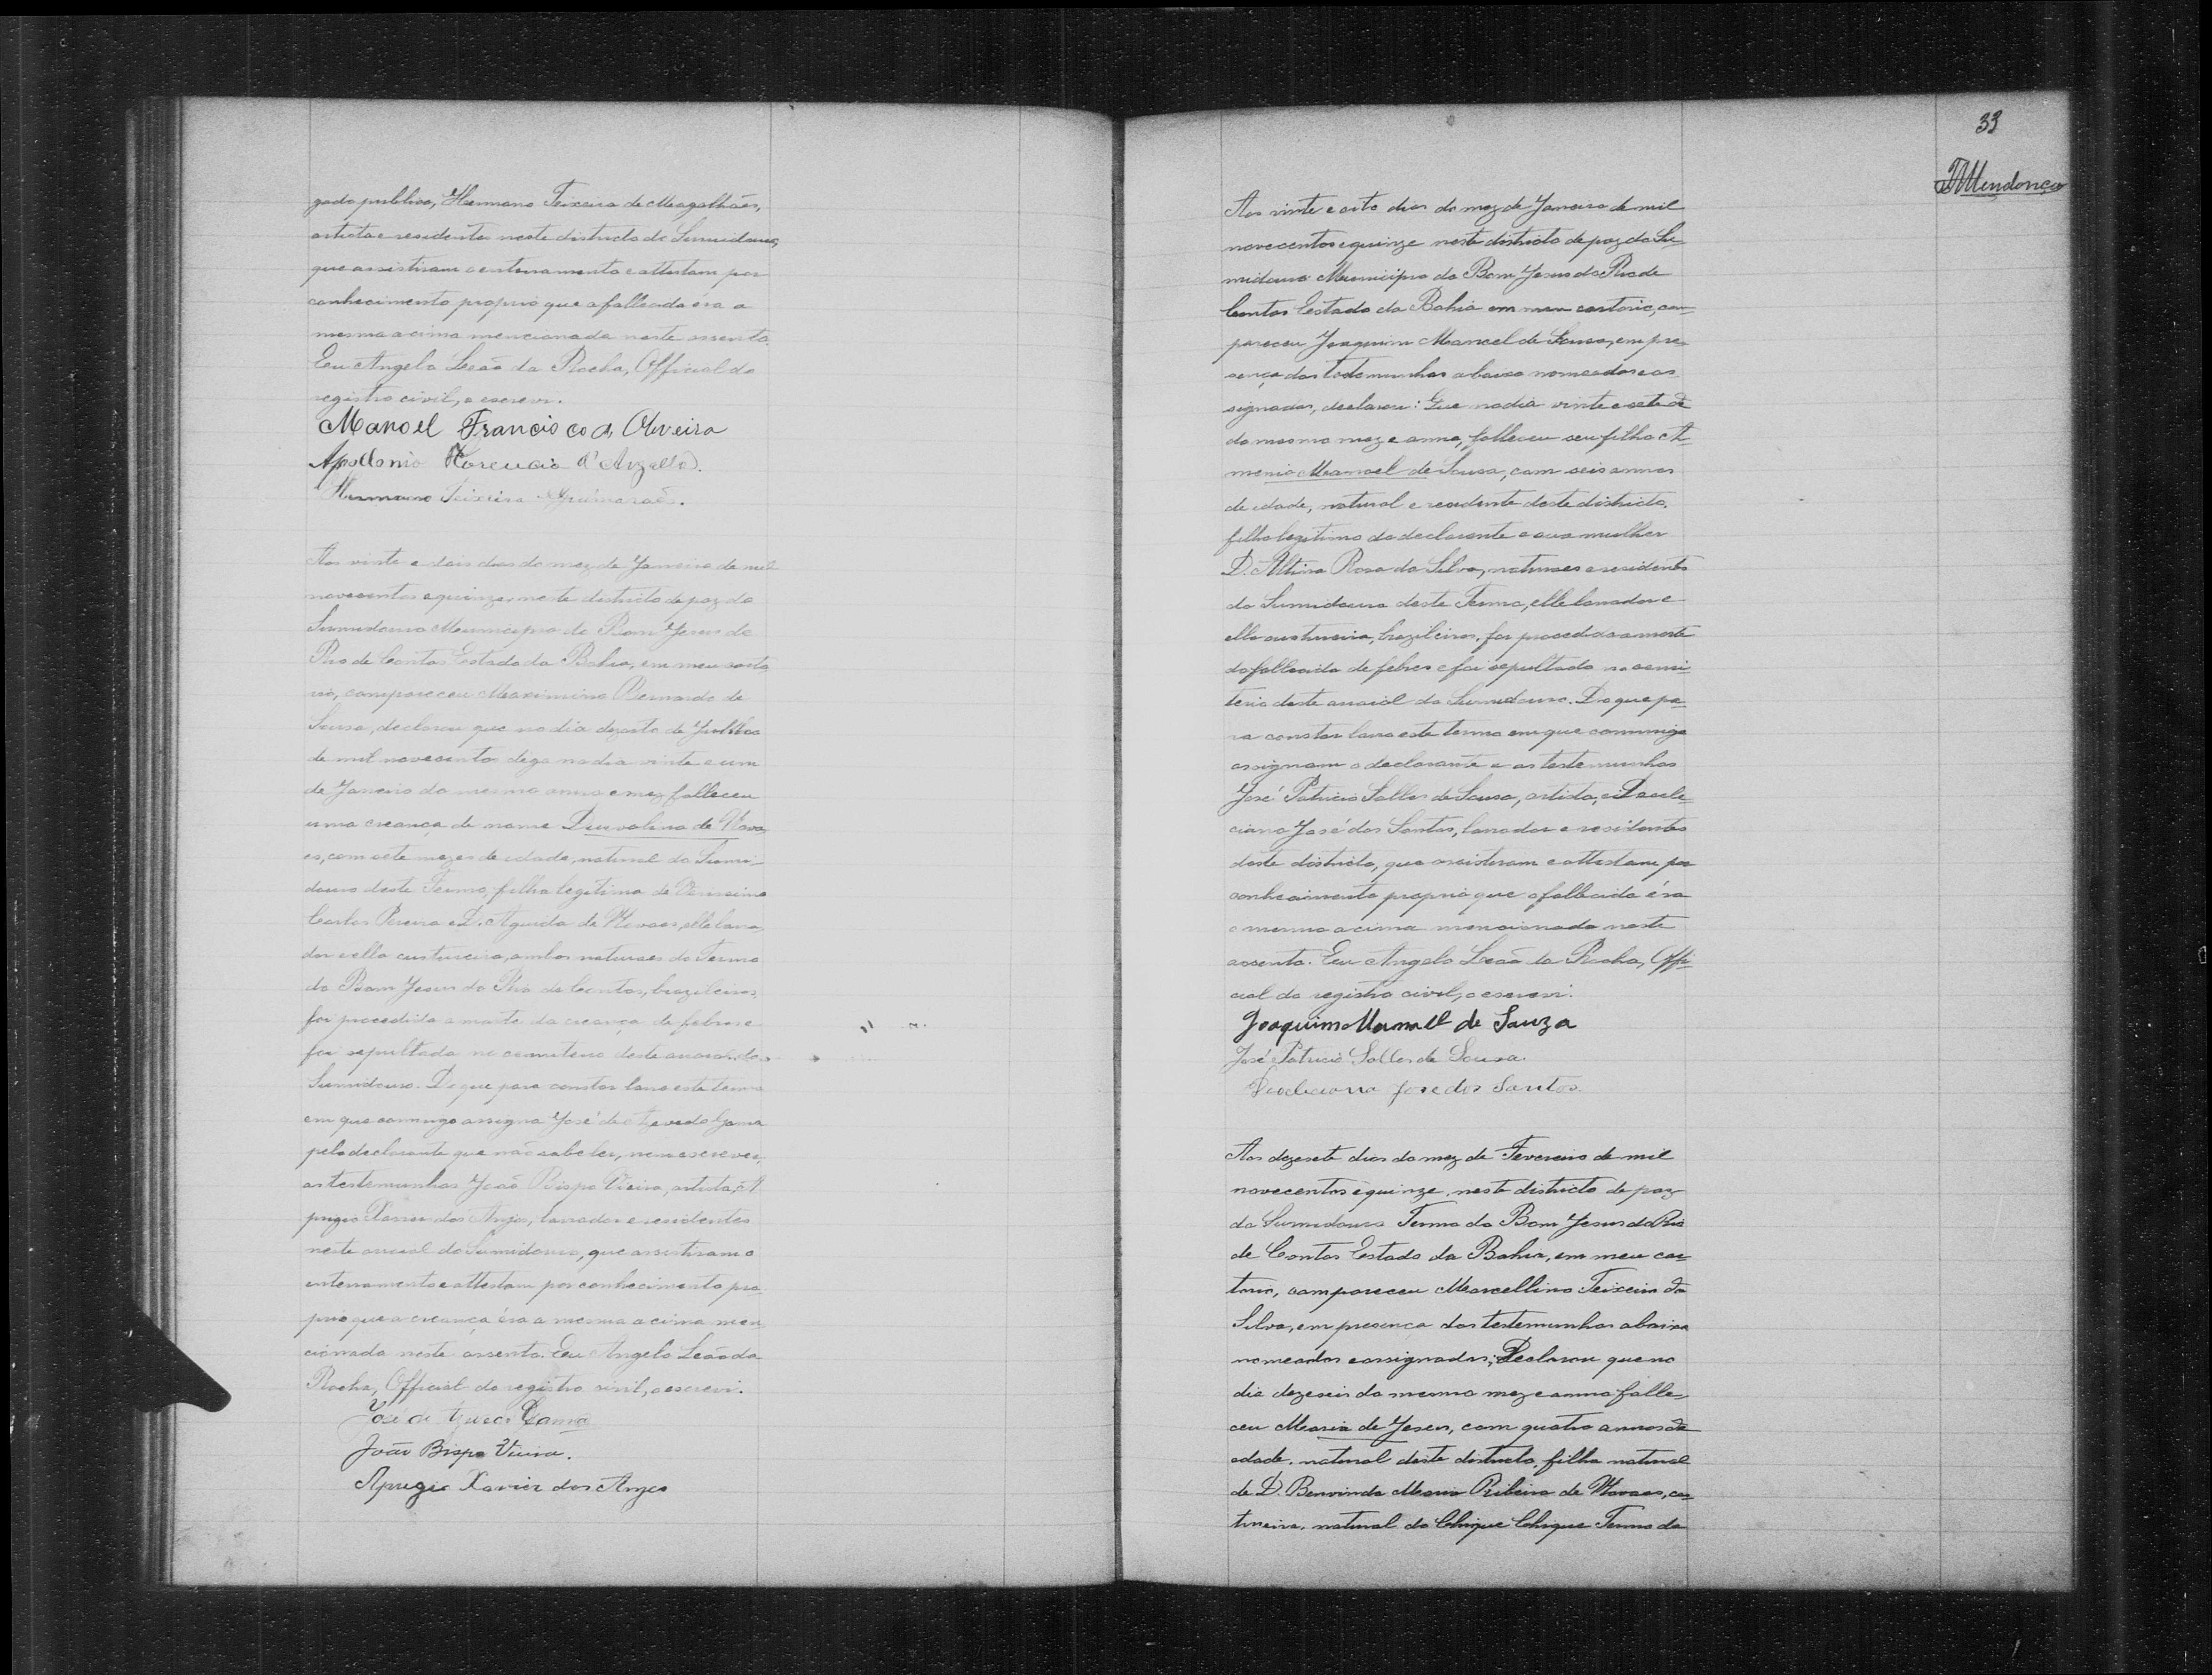 gado publico, Hermano Teixeira de Magalhães,
artista e residentes neste districto do Sumidouro,
que assistiram o enterramento e attestam por
conhecimento proprio que a fallecida éra a
mesma acima mencionada neste assento.
Eu Angelo Leão da Rocha, Official do
registro civil, o escrevi.
Manoel Francisco d, Oliveira
Apollonio Florencio d'Arzello.
Hermano Teixeira
Aos vinte e dois dias do mez de Janeiro de mil
novecentos e quinze, neste districto de paz do
Sumidouro Municipio de Bom Jesus do
Rio de Contas Estado da Bahia, em meu carto
rio, compareceu Maximino Bernardo de
Sousa, declarou que no dia dezoito de Julho
de mil novecentos digo no dia vinte e um
de Janeiro do mesmo anno e mez falleceu
uma creança de nome Durvalina de Nova
es, com sete mezes de idade, natural do Sumi-
douro deste Termo, filha legitima de Verissimo
Carlos Pereira e D. Aguida de Novaes, elle lavra
dor e ella custureira, ambos naturaes do Termo
do Bom Jesus do Rio de Contas, brazileiros,
foi procedida a morte da creança de febres e
foi sepultada no cemiterio deste arraial do
Sumidouro. Do que para constar lavro este termo
em que commigo assigna José de Azevedo Gama
pelo declarante que não sabe ler, nem escrever,
as testemunhas João Bispo Vieira, artista, A
prigio Xavier dos Anjos, lavrador e residentes
neste arraial do Sumidouro, que assistiram o
enterramento e attestam por conhecimento pro
prio que a creança éra a mesma acima men
cionada neste assento. Eu Angelo Leão da
Rocha, Official do registro civil, o escrevi.
José de Azevedo Gama
João Bispo Vieira.
Aprigio Xavier dos Anjos
33
Mendonça
Aos vinte e oito dias do mez de Janeiro de mil
novecentos e quinze neste districto de paz do Su-
midouro Municipio do Bom Jesus do Rio de
Contas Estado da Bahia em meu cartorio, com-
pareceu Joaquim Manoel de Sousa, em pre-
sença das testemunhas abaixo nomeadas e as
signadas, declarou: Que no dia vinte e sete de
do mesmo mez e anno, falleceu seu filho A
menio Manoel de Sousa, com seis annos
de idade, natural e residente deste districto,
filho legitimo do declarante e sua mulher
D. Altina Rosa da Silva, naturaes e residentes
do Sumidouro deste Termo, elle lavrador e
ella custureira, brazileiros, foi procedida a morte
do fallecido de febres e foi sepultado no cemi-
terio deste arraial do Sumidouro. Do que pa-
ra constar lavro este termo em que commigo
assignam o declarante e as testemunhas
José Patricio Salles de Sousa, artista, e Deocle-
ciano José dos Santos, lavrador e residentes
deste districto, que assistiram e attestam por
conhecimento proprio que o fallecido éra
o mesmo acima mencionado neste
assento. Eu Angelo Leão da Rocha, Offi-
cial do registro civil, o escrevi.
Joaquim Manoel de Souza
José Patricio Salles de Sousa.
Deocleciano José dos Santos.
Aos dezesete dias do mez de Fevereiro de mil
novecentos e quinze, neste districto de paz
do Sumidouro Termo do Bom Jesus do Rio
de Contas Estado da Bahia, em meu car-
torio, compareceu Marcellino Teixeira da
Silva, em presença das testemunhas abaixo
nomeadas e assignadas; Declarou que no
dia dezeseis do mesmo mez e anno falle-
ceu Maria de Jesus, com quatro annos de
edade, natural deste districto, filha natural
de D. Benvinda Maria Ribeiro de Novaes, cos
tureira, natural do Chique Chique Termo de